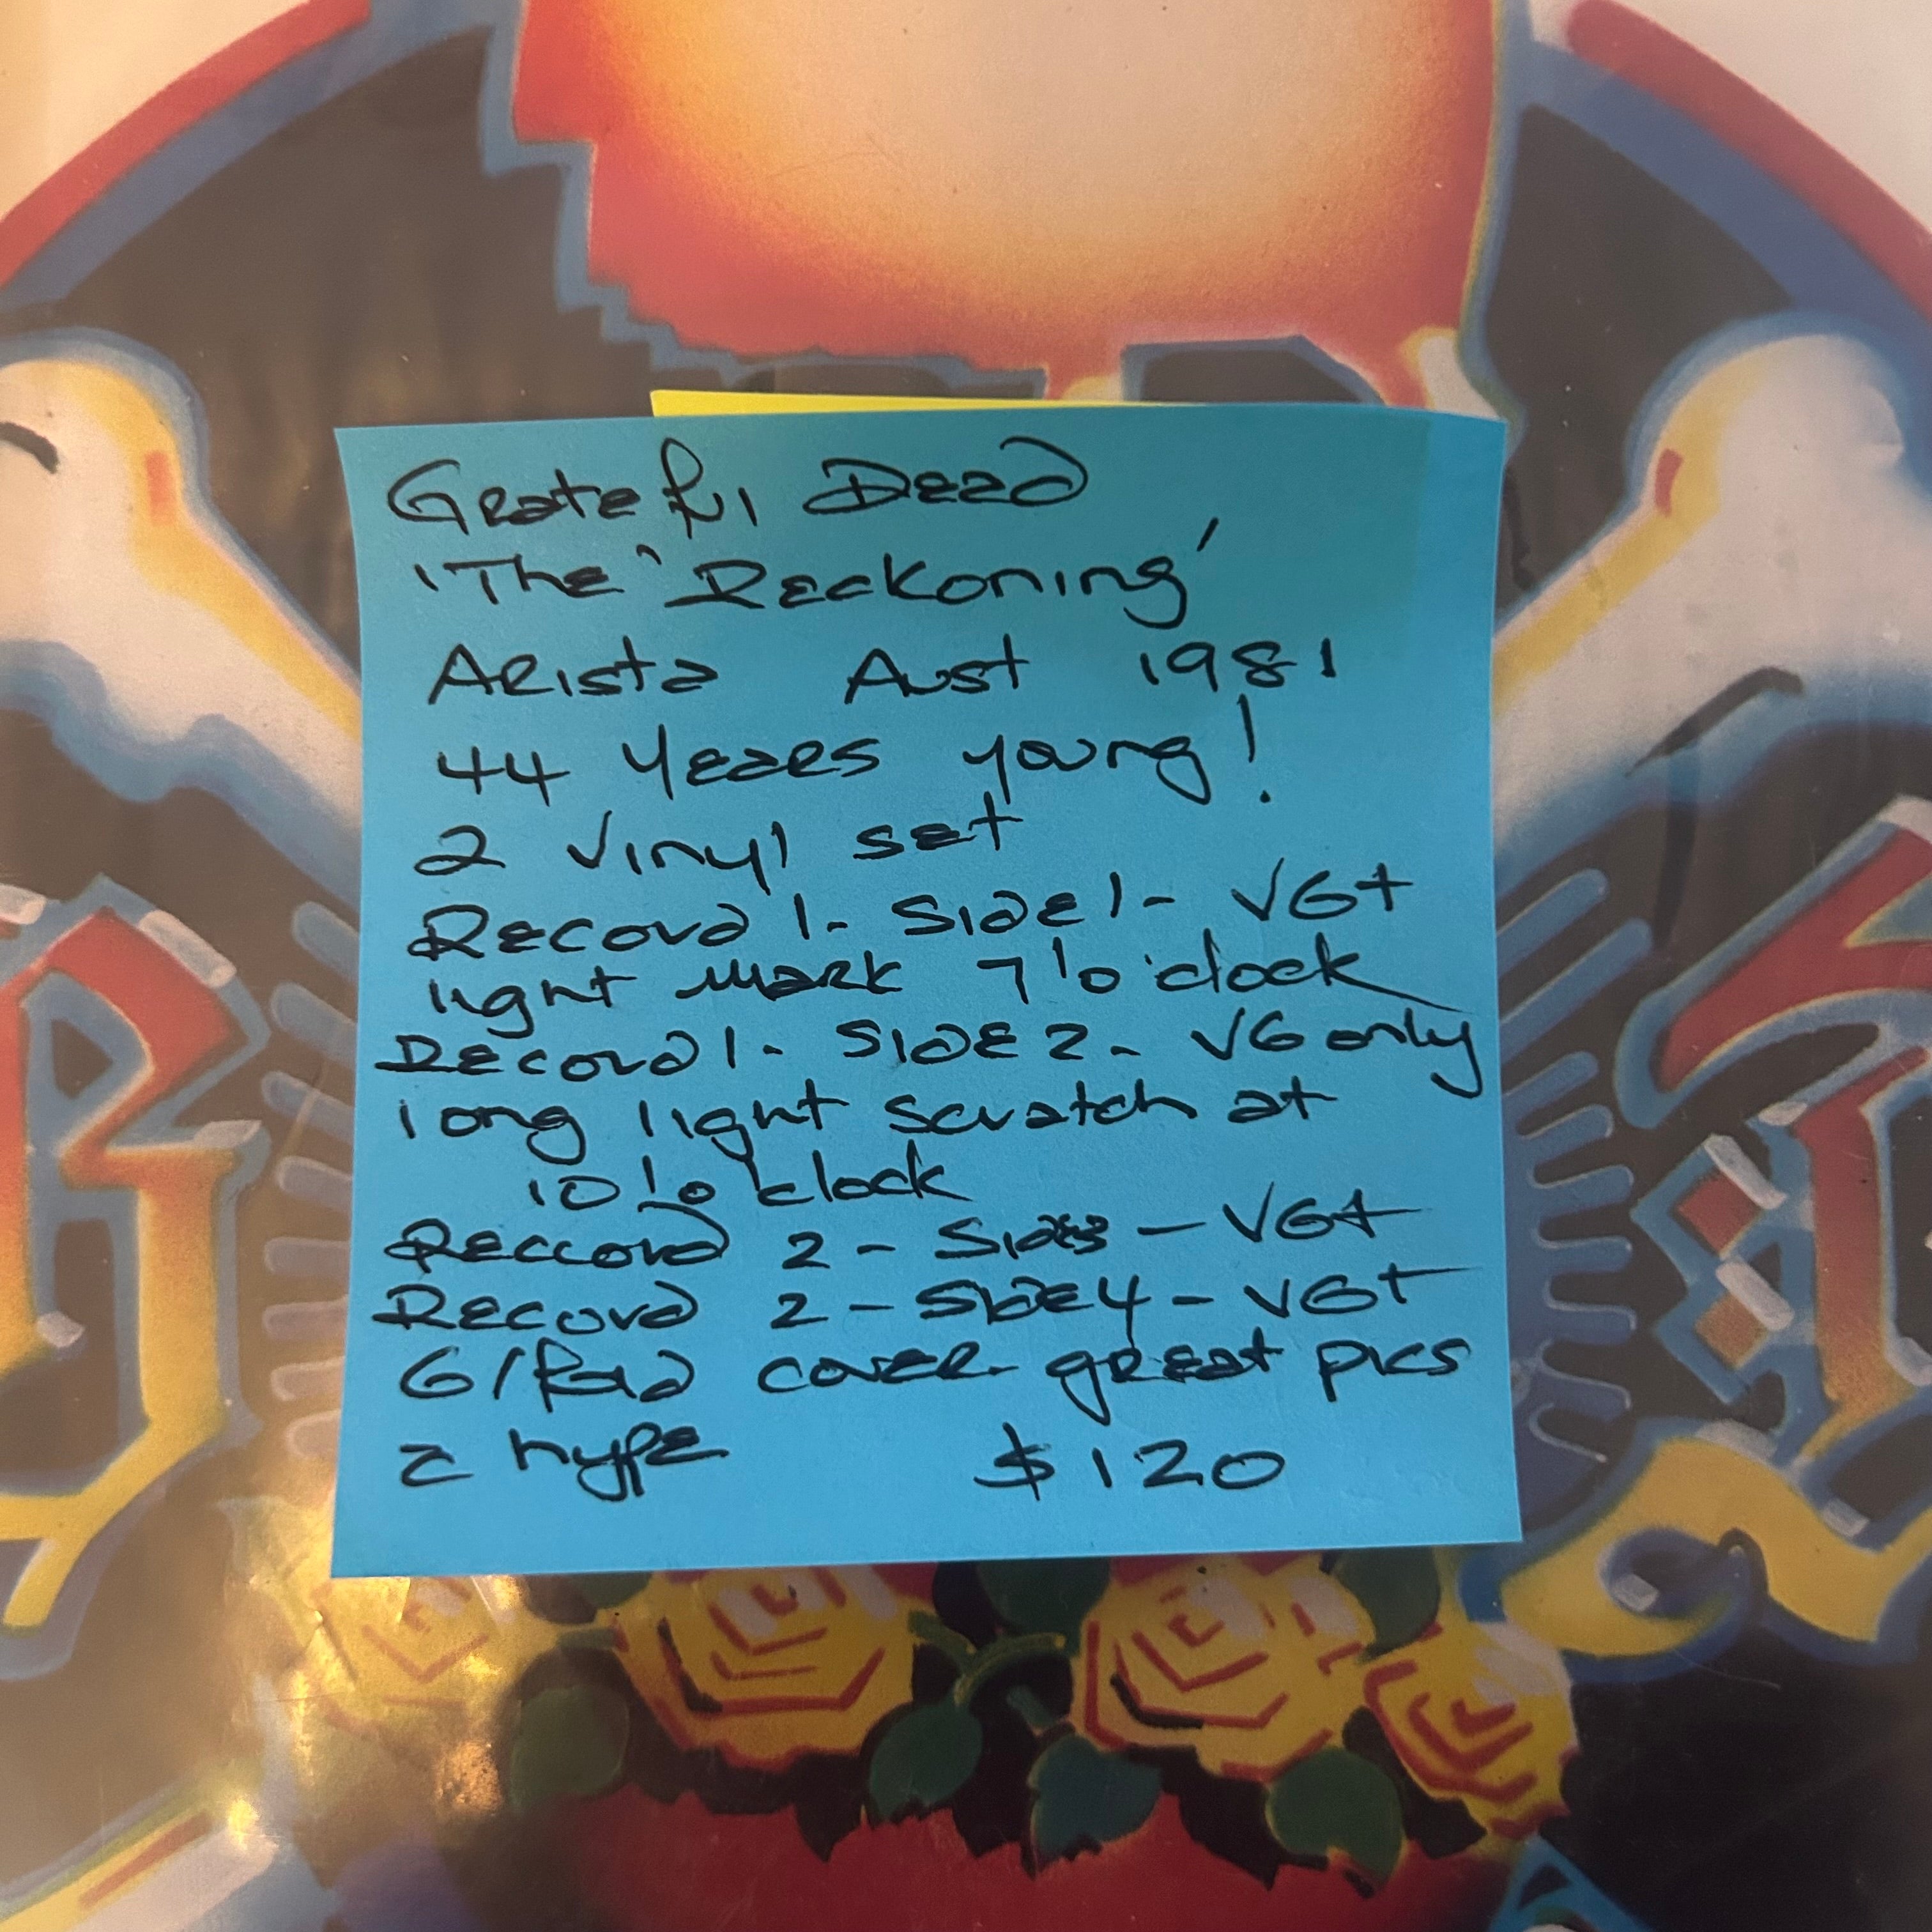 Grateful Dead
'The 'Reckoning'
Arista Aust 1981
44 years young!
2 vinyl set
Record 1- Side 1- VG+
light mark 7'o'clock
Record 1- Side 2- VG only
long light scratch at
10'o'clock
Reccord 2 - Side 3 - VG+
Record 2 - Side 4 - VG+
G/fold cover great pics
& hype $120